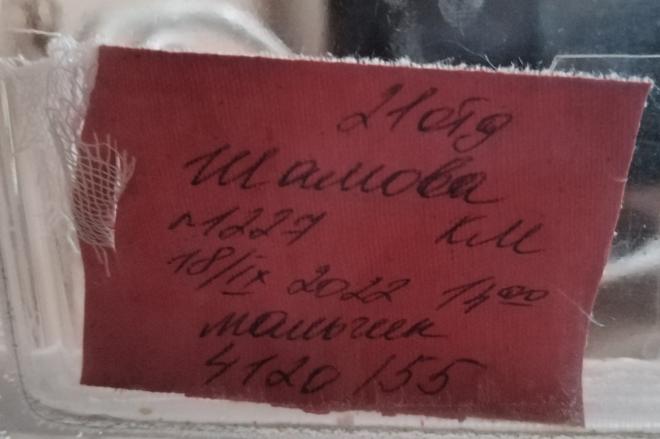 21 отд
Шамова
№1227 КМ
18/IX 2022 14 00
мальчик
4120/55